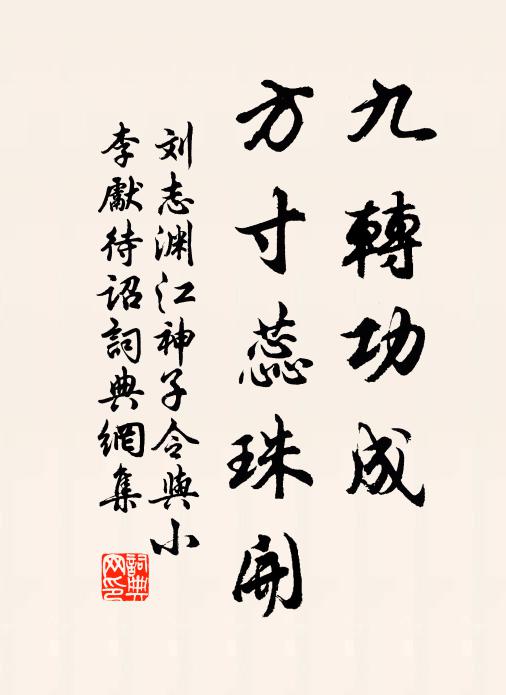 九轉功成
方寸蕊珠開
刘志渊江神子令與小
李獻待诏詞典網集
詞典网印